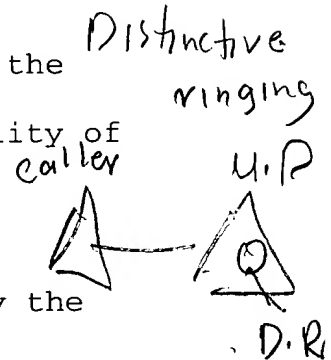 Distinctive
the
ringing
ity of
caller
U.P
the
D.R.